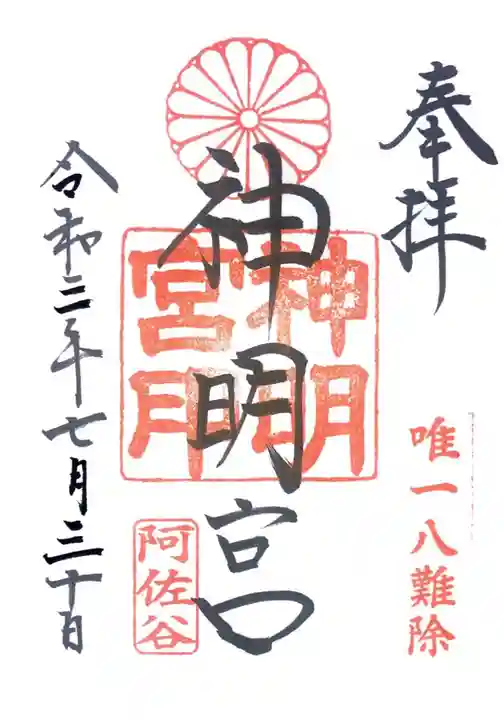 奉拝
唯一八難除
神明宮
神明
宮月
阿佐谷
令和三年七月三十日